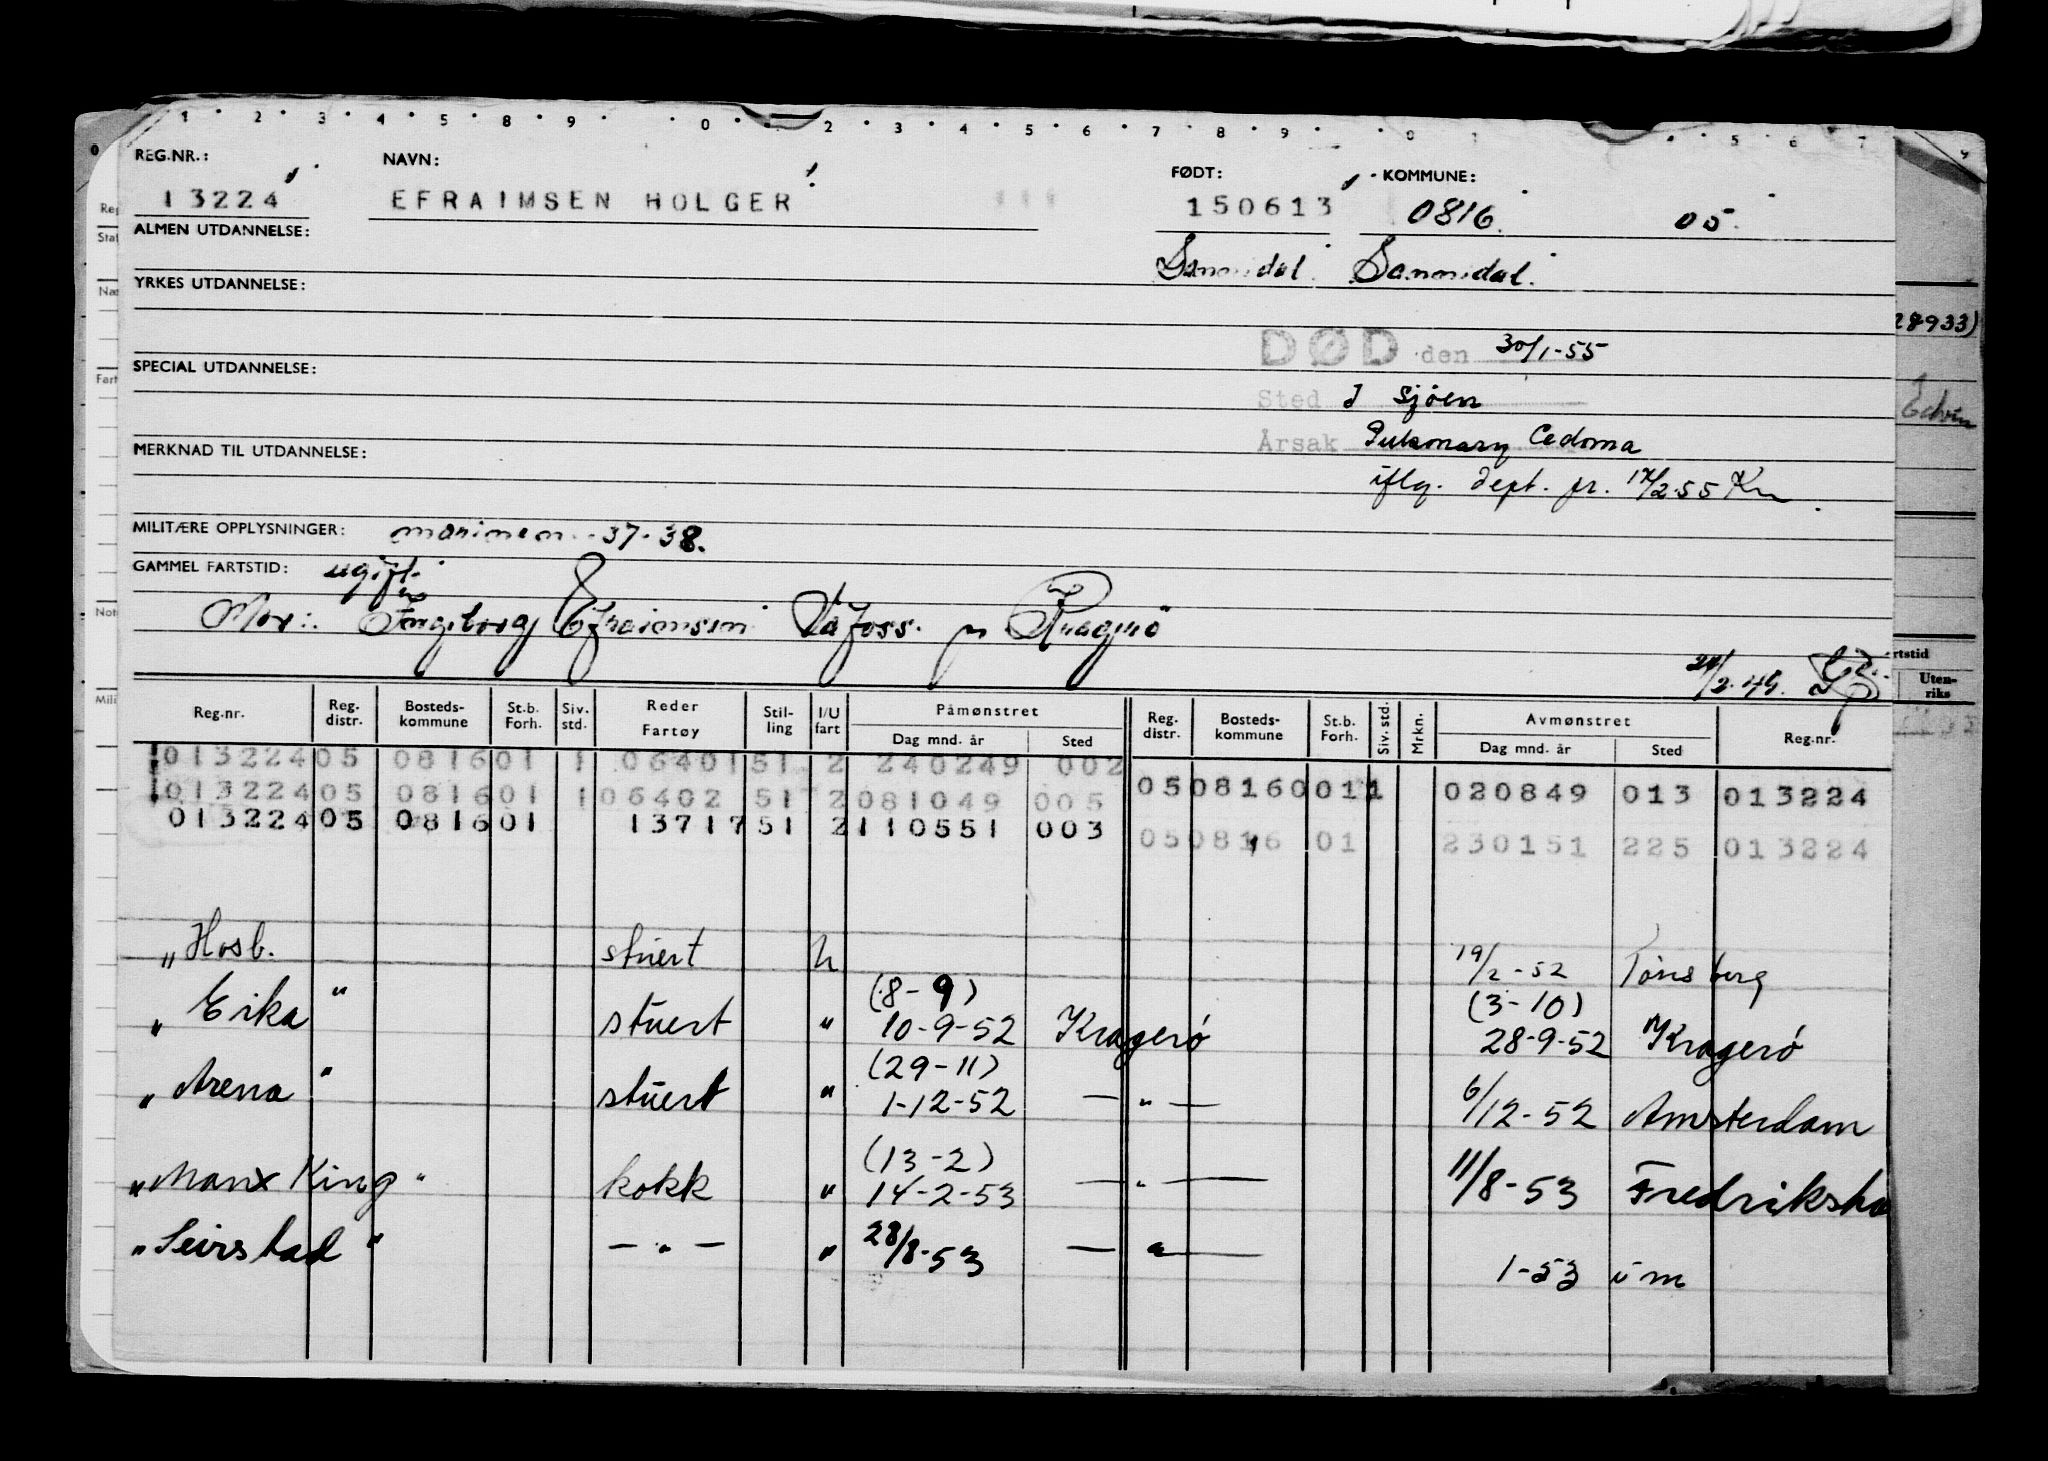 1 2 3 4 5 8 9 0 2 3 4 5 6 7 8 9 0 1 5 6 7
REG.NR.: NAVN: FØDT: KOMMUNE:
13224 EFRAIMSEN HOLGER 150613 0816 05
ALMEN UTDANNELSE:
Sannidal Sannidal
YRKES UTDANNELSE:
28933)
DØD den 30/1-55
SPECIAL UTDANNELSE:
Sted I sjøen
Edvin
Årsak Pulmonary Oedoma
MERKNAD TIL UTDANNELSE:
iflg. dept. pr. 17/2-55 Kn
MILITÆRE OPPLYSNINGER: marinen 37-38.
GAMMEL FARTSTID: ugift.
Mor: Ingeborg Efraimsen Dåfoss. pr Kragerø
24/2.49.
rtstid
Uten-
riks
Reg.nr. Reg. distr. Bosteds-kommune St.b. Forh. Siv. std. Reder Fartøy Stil-ling I/U fart Påmønstret Dag mnd. år Sted Reg. distr. Bosteds-kommune St.b. Forh. Siv. std. Mrkn. Avmønstret Dag mnd. år Sted Reg.nr.
013224 05 0816 01 1 06401 51 2 240249 002
05 0816 0 01 1 1 020849 013 013224
013224 05 0816 01 1 06402 51 2 081049 005
013224 05 0816 01 13717 51 2 110551 003
05 0816 01 230151 225 013224
„Hosb. stuert u 19/2-52 Tønsberg
(8-9) (3-10)
„Erika" stuert " 10-9-52 Kragerø 28-9-52 Kragerø
(29-11)
„Arena" stuert " 1-12-52 — " — 6/12-52 Amsterdam
(13-2)
„Manx King" kokk " 14-2-53 — " — 11/8-53 Fredriksha
„Seirstad" — " — " 28/8-53 — " — 1-53 um